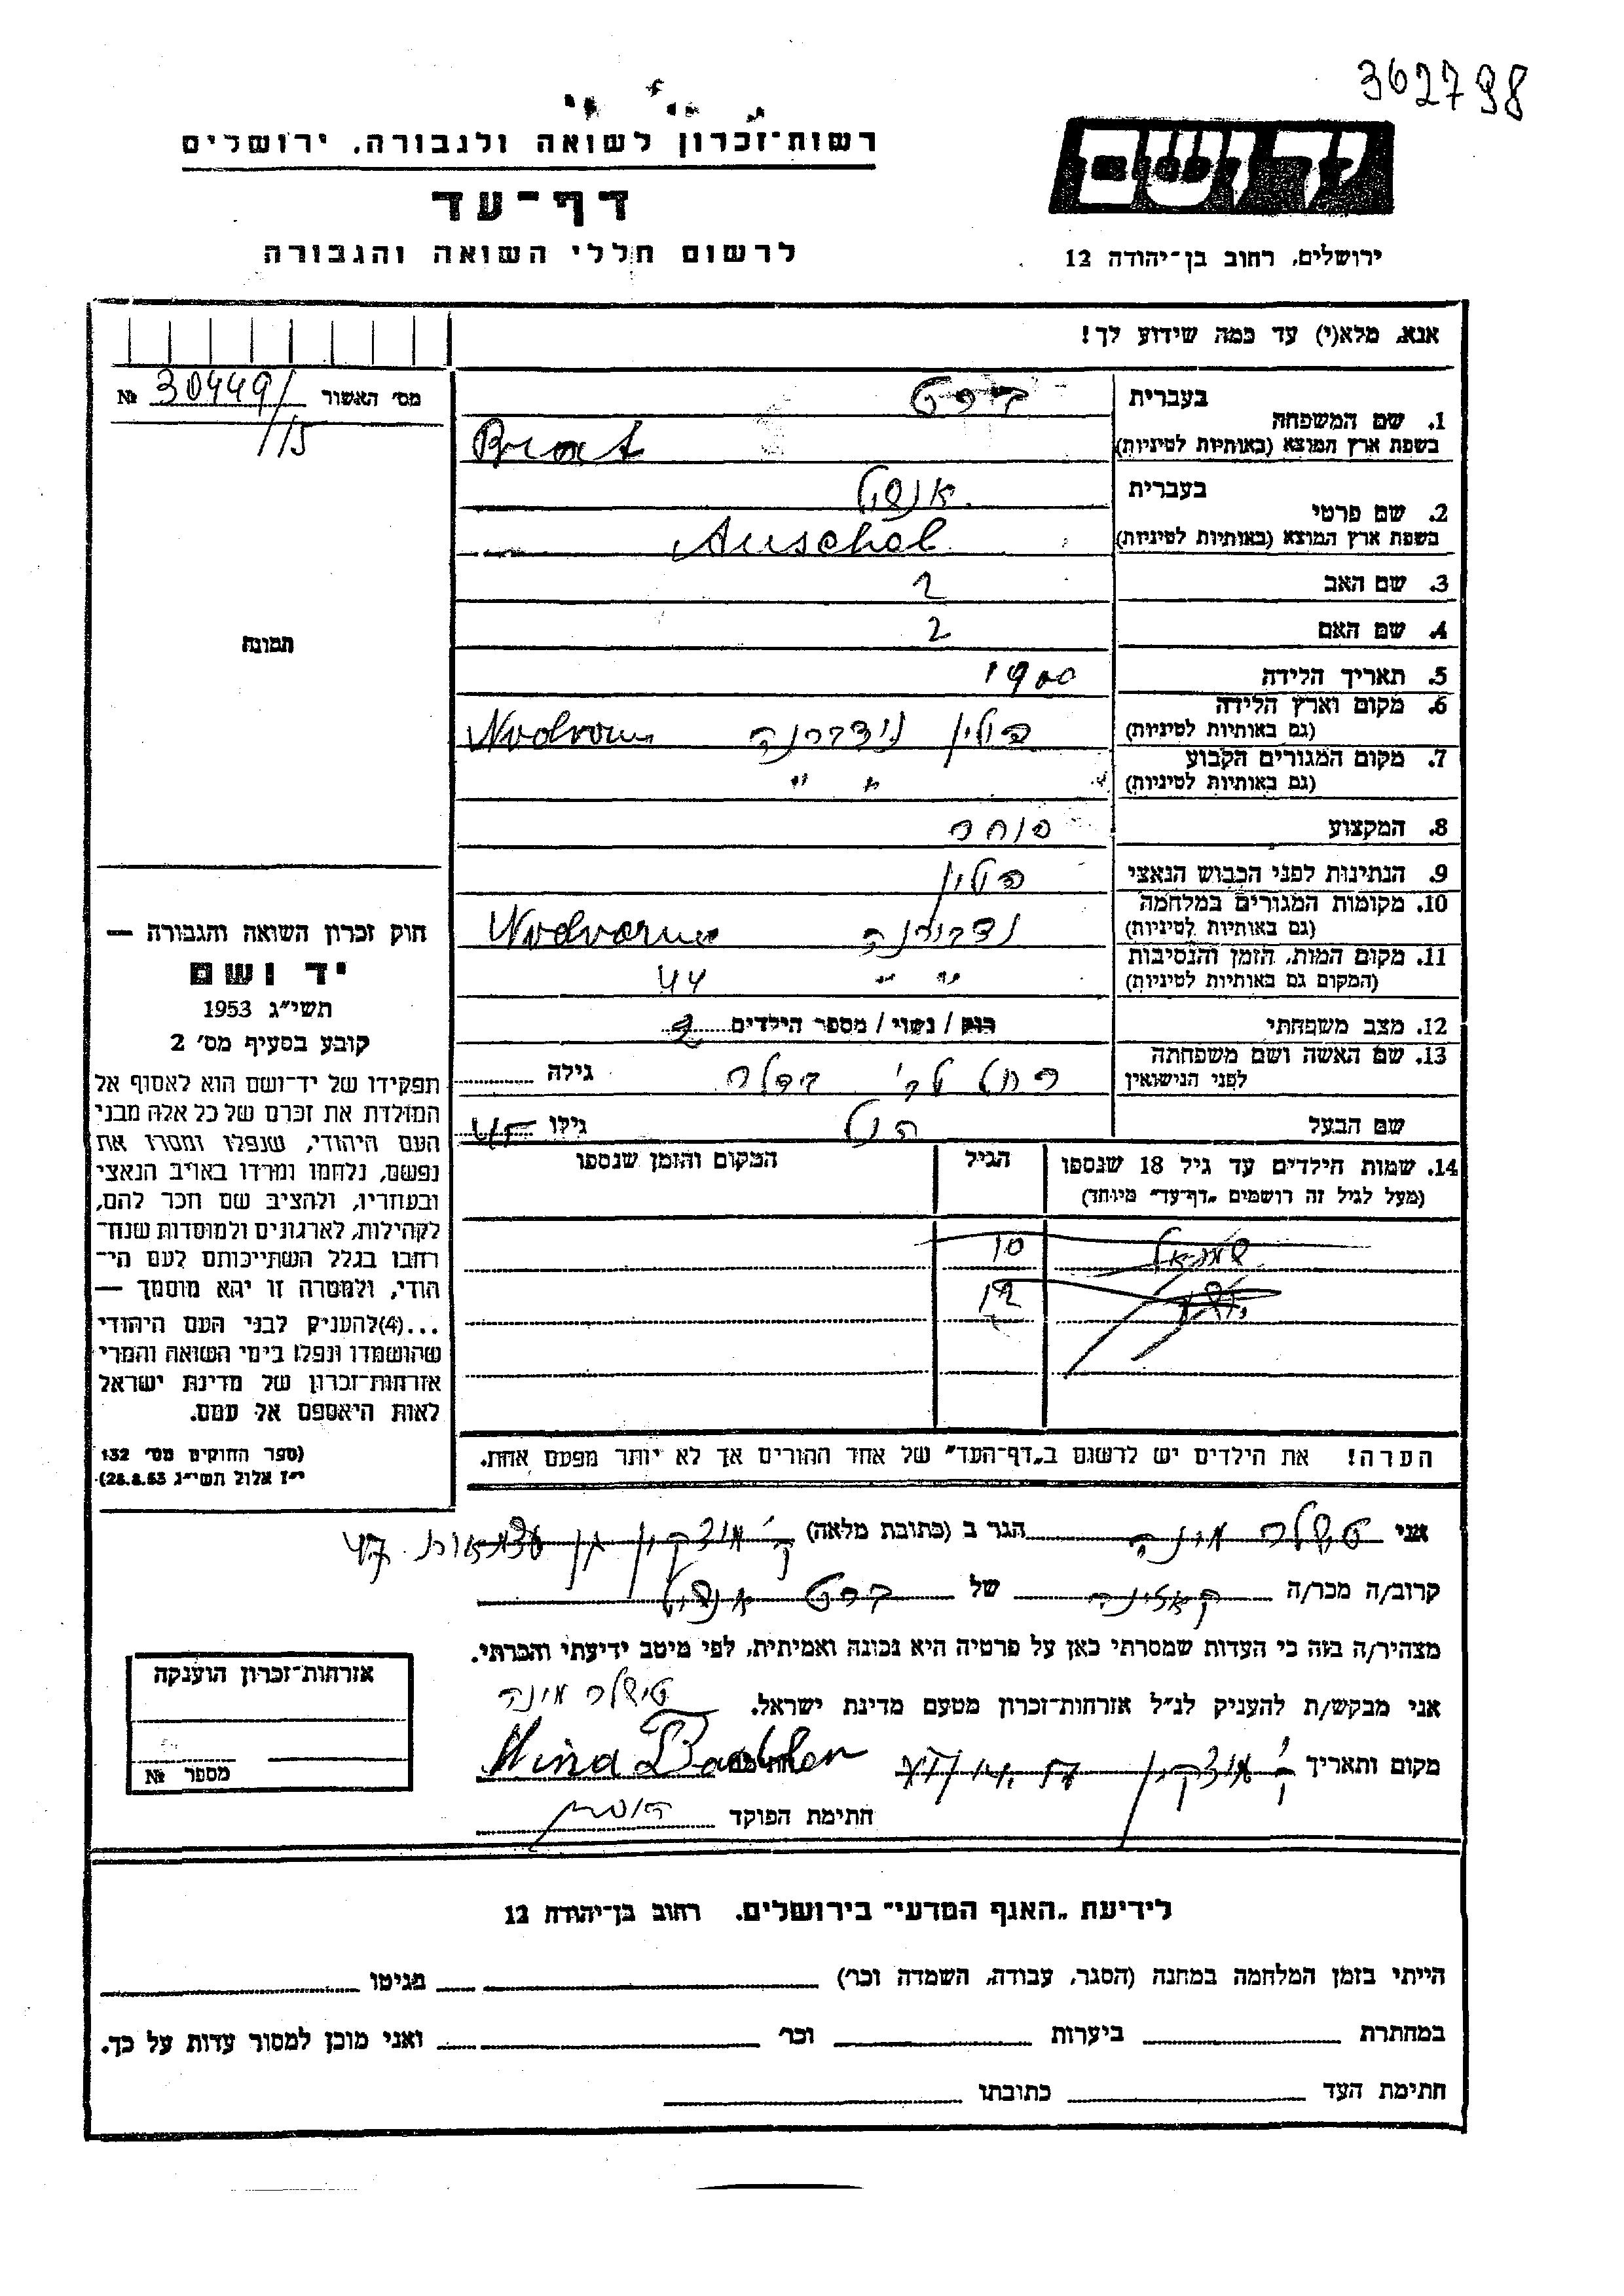 362798
רשות־זכרון לשואה ולגבורה, ירושלים
דף־עד
לרשום חללי השואה והגבורה
ידושם
ירושלים, רחוב בן־יהודה 12
אנא, מלא(י) עד כמה שידוע לך!
מס׳ האשור № 30449/
/15
תמונה
1. שם המשפחה
בעברית
בשפת ארץ המוצא (באותיות לטיניות)
2. שם פרטי
בעברית אנשיל
בשפת ארץ המוצא (באותיות לטיניות) Anschel
3. שם האב
4. שם האם
5. תאריך הלידה 1900
6. מקום וארץ הלידה פולין
(גם באותיות לטיניות)
7. מקום המגורים הקבוע " "
(גם באותיות לטיניות)
8. המקצוע סוחר
9. הנתינות לפני הכבוש הנאצי פולין
10. מקומות המגורים במלחמה Nadvorna
(גם באותיות לטיניות)
11. מקום המות, הזמן והנסיבות " " 44
(המקום גם באותיות לטיניות)
12. מצב משפחתי רוק / נשוי / מספר הילדים 2
13. שם האשה ושם משפחתה רחל גילה
לפני הנישואין
שם הבעל הנ"ל גילו 45
14. שמות הילדים עד גיל 18 שנספו הגיל המקום והזמן שנספו
(מעל לגיל זה רושמים „דף־עד" מיוחד)
שמואל 10
12
הערה! את הילדים יש לרשום ב„דף־העד" של אחד ההורים אך לא יותר מפעם אחת.
חוק זכרון השואה והגבורה —
יד ושם
תשי״ג 1953
קובע בסעיף מס׳ 2
תפקידו של יד־ושם הוא לאסוף אל
המולדת את זכרם של כל אלה מבני
העם היהודי, שנפלו ומסרו את
נפשם, נלחמו ומרדו באויב הנאצי
ובעוזריו, ולהציב שם וזכר להם,
לקהילות, לארגונים ולמוסדות שנח־
רבו בגלל השתייכותם לעם הי־
הודי, ולמטרה זו יהא מוסמך —
...(4)להעניק לבני העם היהודי
שהושמדו ונפלו בימי השואה והמרי
אזרחות־זכרון של מדינת ישראל
לאות היאספם אל עמם.
(ספר החוקים מס׳ 132
י״ז אלול תשי״ג 28.8.53)
אני מינה הגר ב (כתובת מלאה) ק׳ מוצקין 47
קרוב/ה מכר/ה של אנשיל
מצהיר/ה בזה כי העדות שמסרתי כאן על פרטיה היא נכונה ואמיתית, לפי מיטב ידיעתי והכרתי.
אני מבקש/ת להעניק לנ״ל אזרחות־זכרון מטעם מדינת ישראל. מינה
מקום ותאריך ק׳ מוצקין Mina
חתימת הפוקד
אזרחות־זכרון הוענקה
מספר №
לידיעת „האגף המדעי" בירושלים, רחוב בן־יהודה 12
הייתי בזמן המלחמה במחנה (הסגר, עבודה, השמדה וכו׳) בגיטו
במחתרת ביערות וכו׳ ואני מוכן למסור עדות על כך.
חתימת העד כתובתו